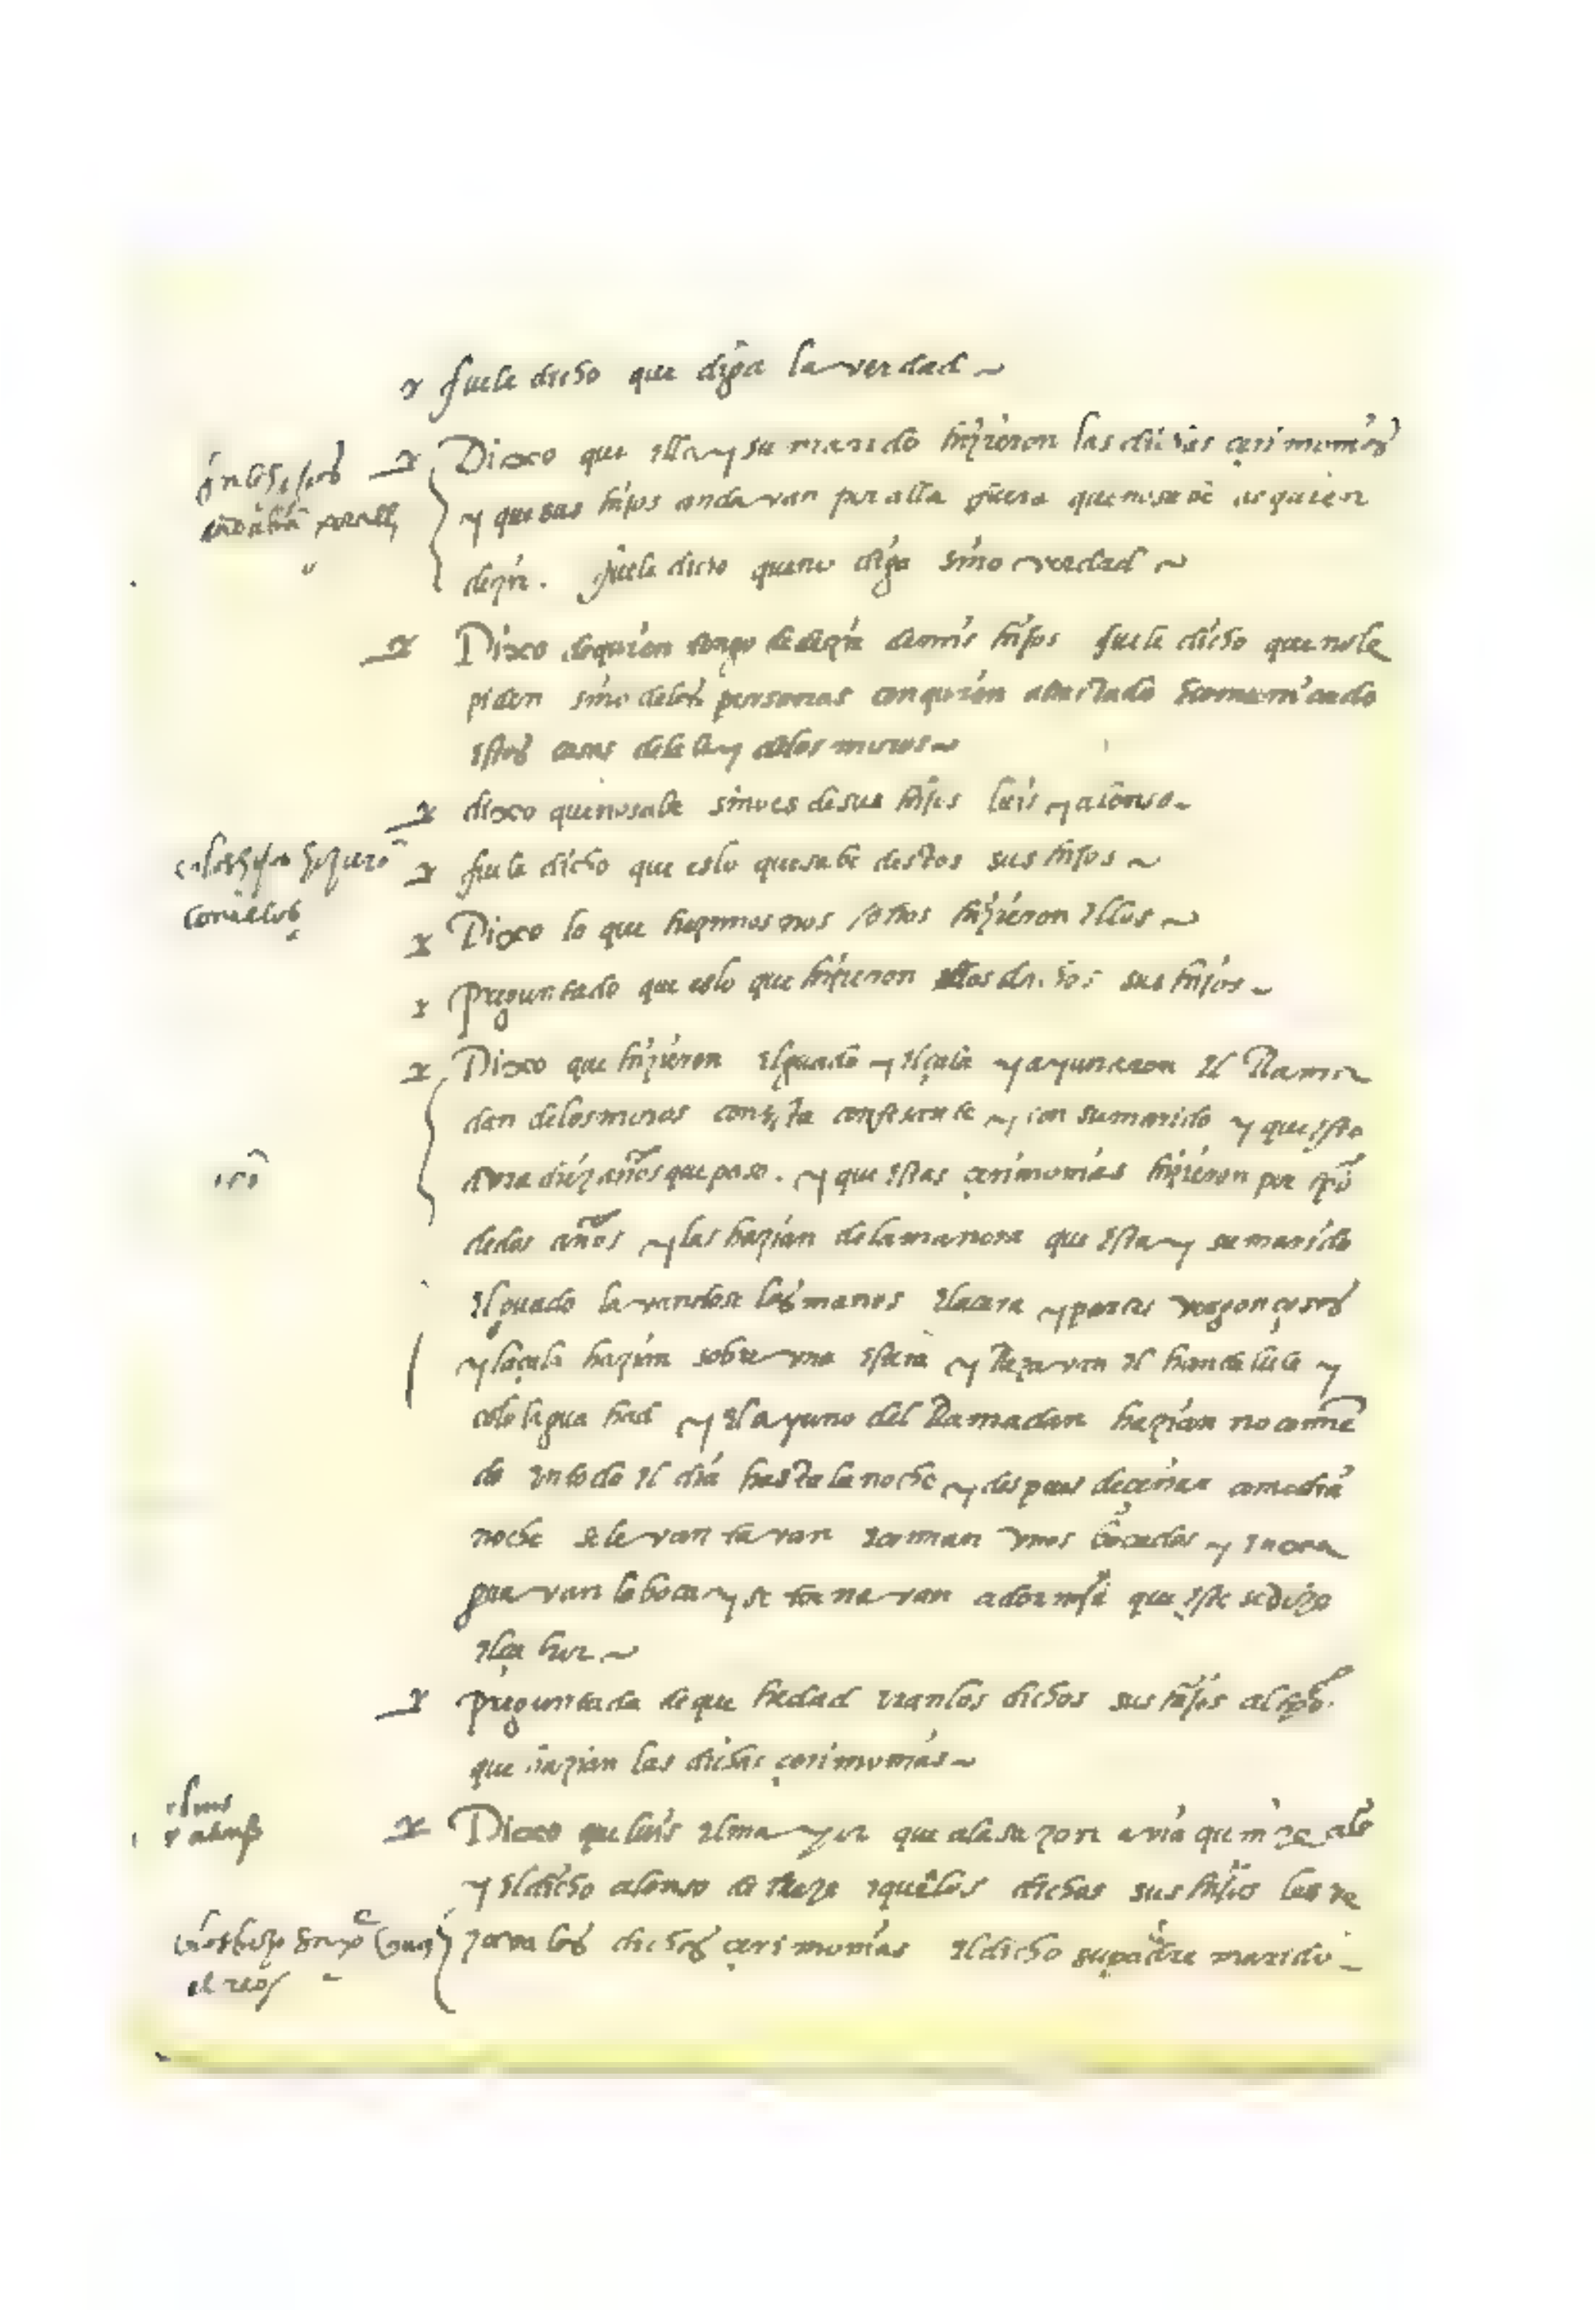 fuele dicho que diga la verdad
Dixo que ella y su marido hizieron las dichas cerimonias
y que sus hijos andavan por alla fuera que no sabe de quien
dezir. fuele dicho que no diga sino verdad
Dixo de quien tengo de dezir de mis hijos fuele dicho que no le
piden sino de las personas con quien a tratado comunicado
estas cosas de la ley de los moros
dixo que no sabe sino es de sus hijos luis y alonso
fuele dicho que es lo que sabe destos sus hijos
Dixo lo que hezimos nosotros hizieron ellos
Preguntado que es lo que hizieron los dichos sus hijos
Dixo que hizieron el guado y el çala y ayunaron el Rama
dan de los moros con esta confesante y con su marido y que esto
avra diez años que paso. y que estas cerimonias hizieron por tpo
de dos años y las hazian de la manera que esta y su marido
el guado lavandose las manos e la cara y partes vergonçosas
y la çala hazian sobre una estera y Rezavan el handulila y
colo lagua had y el ayuno del Ramadan hazian no comie
do en todo el dia hasta la noche y despues de cenar a media
noche se levantavan e comian unos bocados y enxa
guavan la boca y se tornavan a dormir que este se dize
el çahur
preguntada de que hedad eran los dichos sus hijos al tpo
que hazian las dichas cerimonias
Dixo que luis el mayor que a la sazon avia quinze años
y el dicho alonso de treze e que a los dichos sus hijos les ve
zava las dichas cerimonias el dicho su padre marido